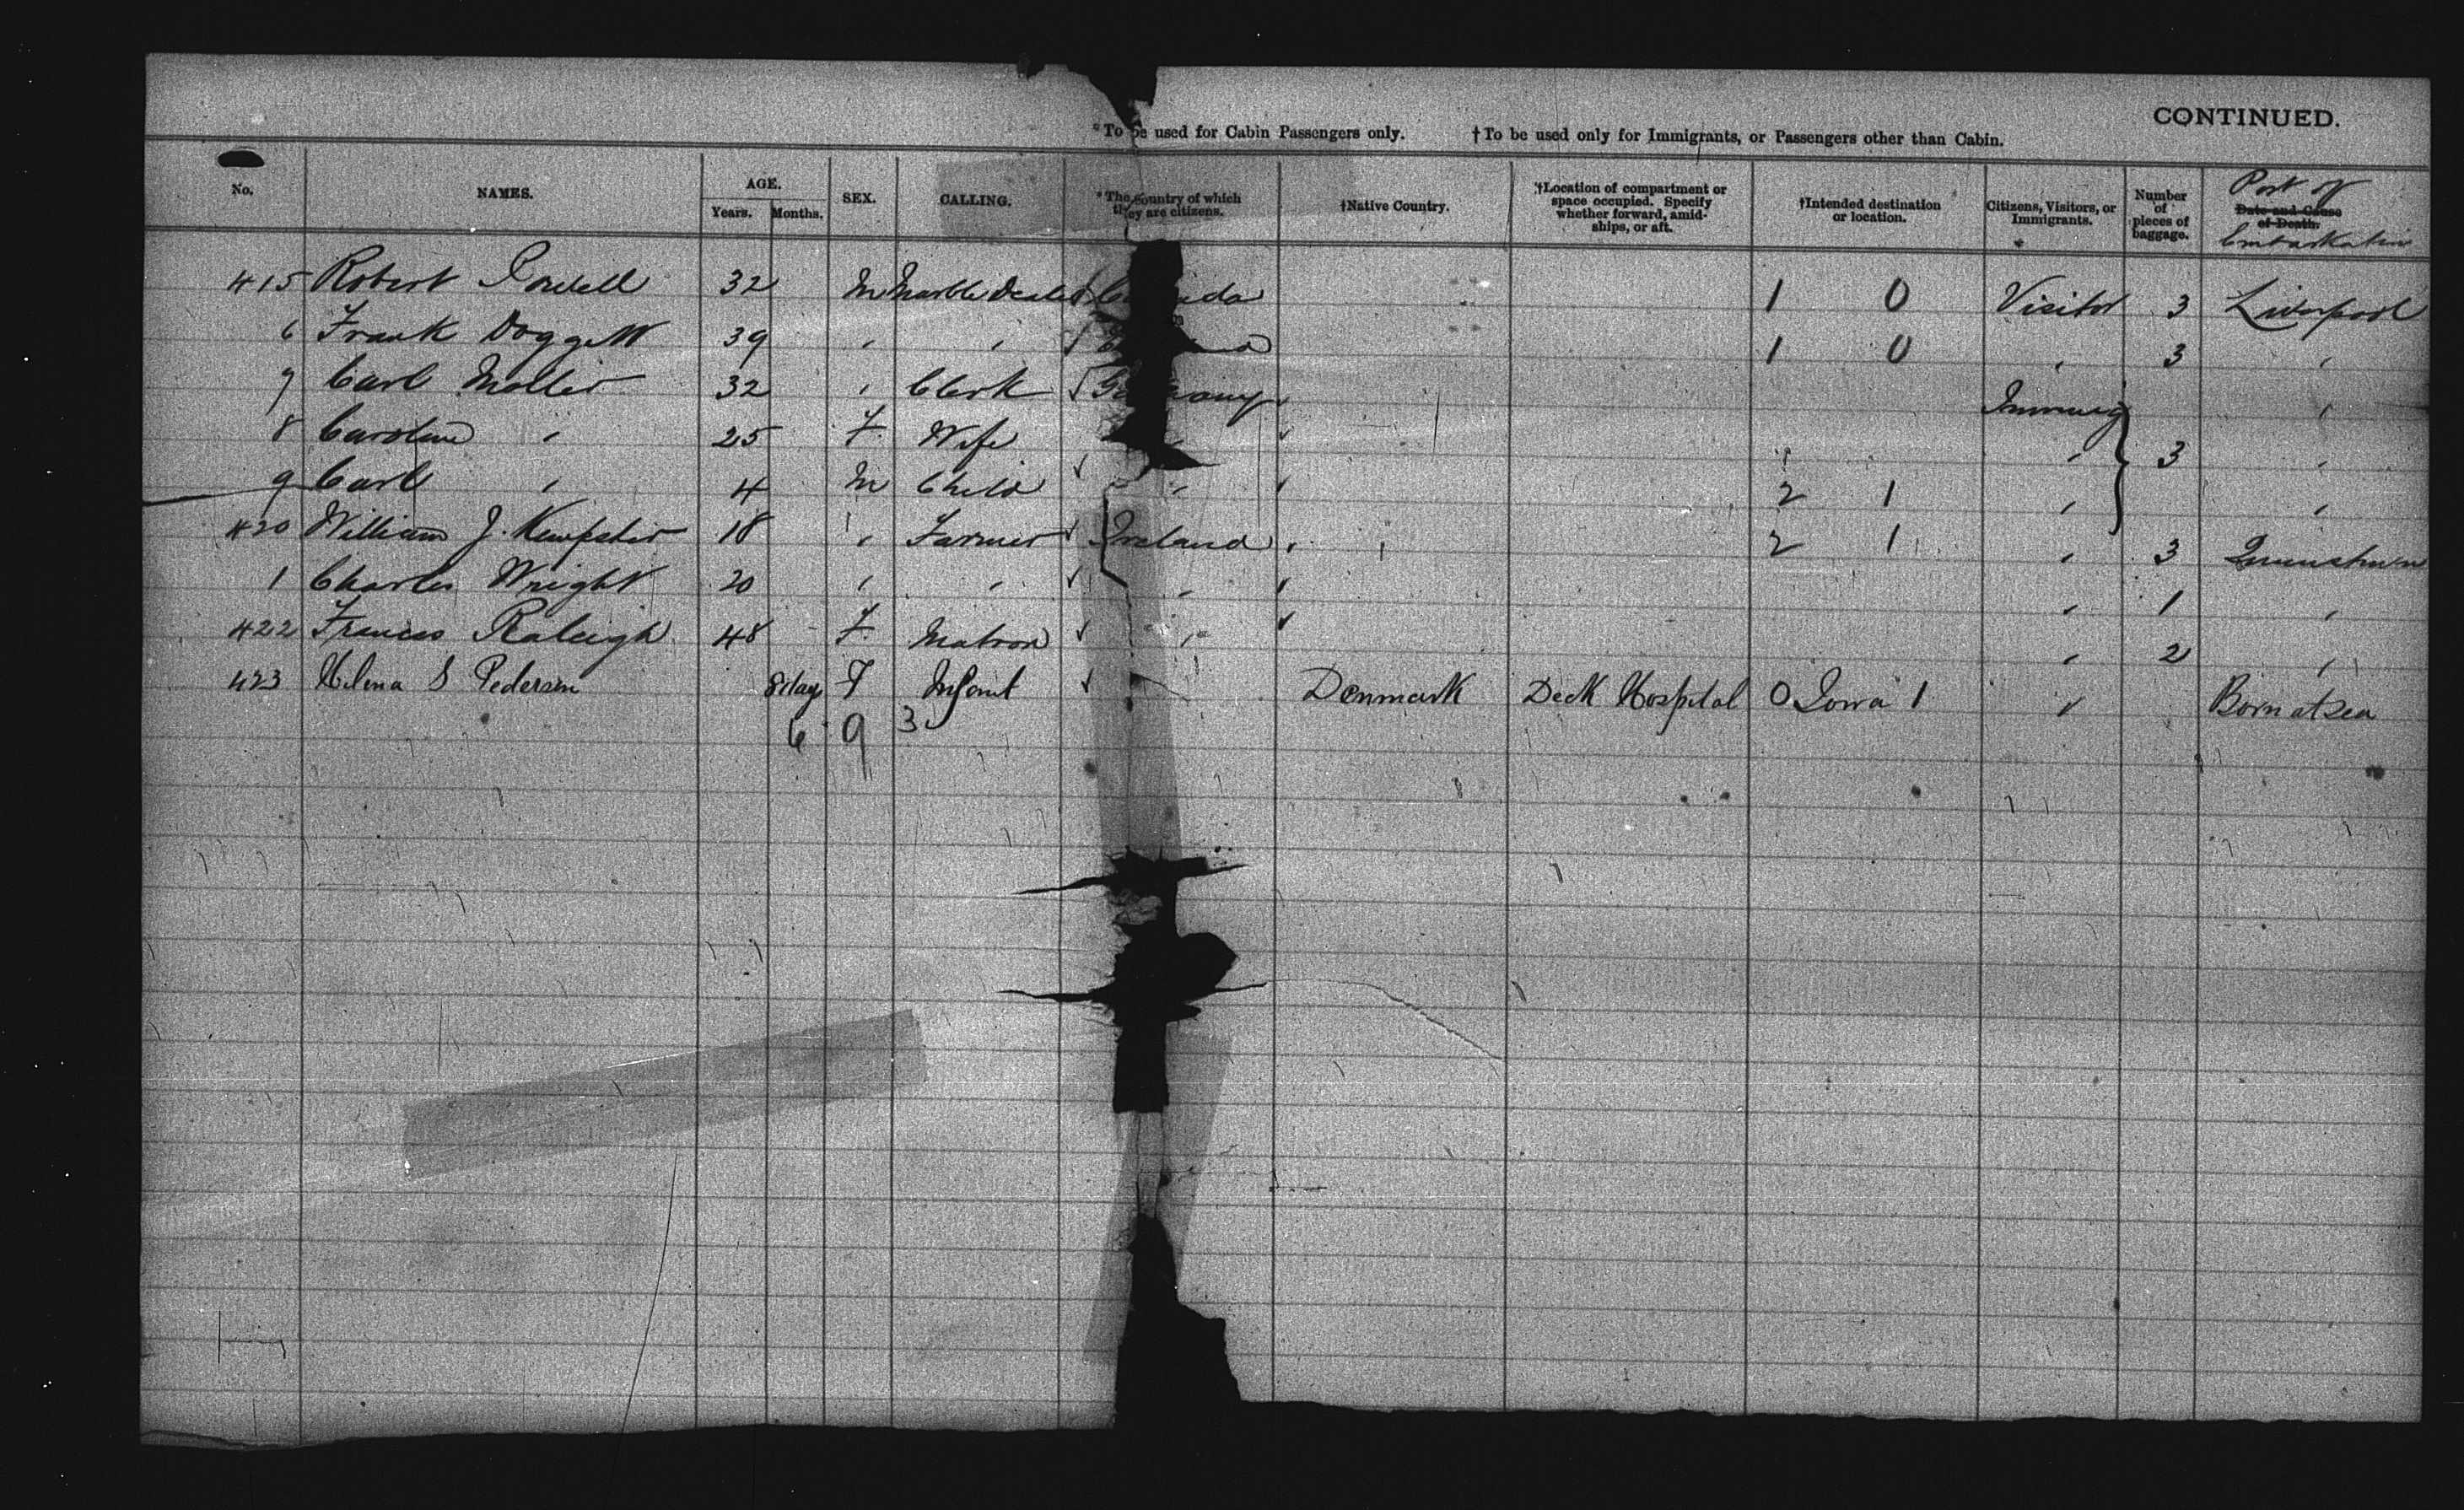 CONTINUED.
*To be used for Cabin Passengers only. †To be used only for Immigrants, or Passengers other than Cabin.
No. NAMES. AGE. Years. Months. SEX. CALLING. *The Country of which they are citizens. †Native Country. †Location of compartment or space occupied. Specify whether forward, amidships, or aft. †Intended destination or location. Citizens, Visitors, or Immigrants. Number of pieces of baggage. Date and Cause of Death. Port of Embarkation
415 Robert 32 M Marble Dealer 1 0 Visitor 3 Liverpool
6 Frank Doggett 39 " " 1 0 " 3 "
7 Carl Moller 32 " Clerk Germany Immig "
8 Caroline " 25 F. Wife " " 3 "
9 Carl " 4 M Child " 2 1 " "
420 William J. Kempster 18 " Farmer Ireland 2 1 " 3 Queenstown
1 Charles Wright 20 " " " " 1 "
422 Frances Raleigh 48 F. Matron " " 2 "
423 Helena S Pedersen 8 days F Infant Denmark Deck Hospital 0 Iowa 1 " Born at Sea
6 9 3